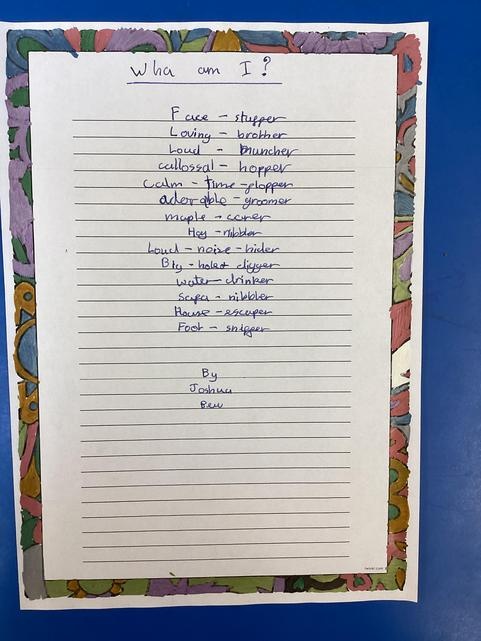 Wha am I?
Face - stupper
Loving - brother
Loud - muncher
collossal - hopper
Calm - time - flopper
adorable - groomer
maple - carer
Hay - nibbler
Loud - noise - hider
Big - holes digger
water - drinker
Sofa - nibbler
House - escaper
Foot - snipper
By
Joshua